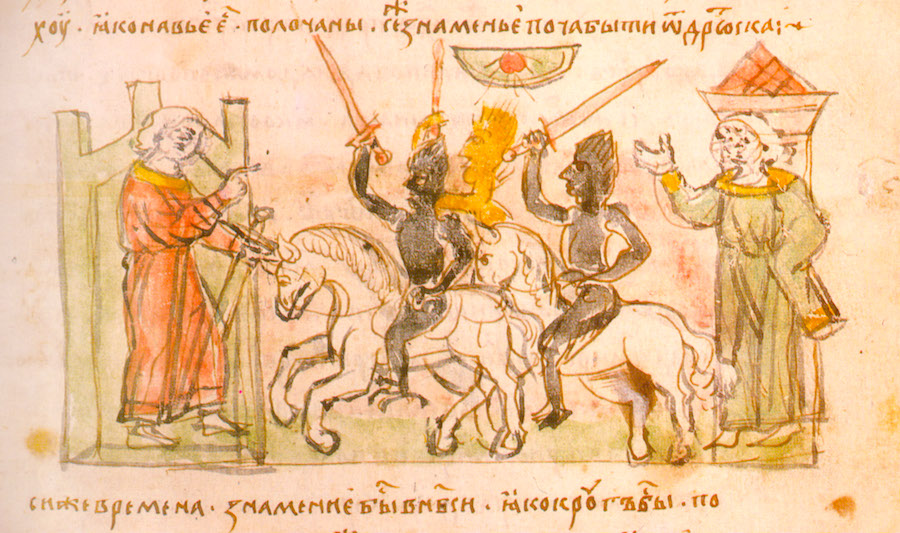 хоу · ꙗко навьє є҃ · полочаны · сеж҃ знаменьє поча быти ѿ дрю҃ска ⁘
сиже времена · знамениє бы҃ в нб҃си · ꙗко кроугъ бы҃ · по